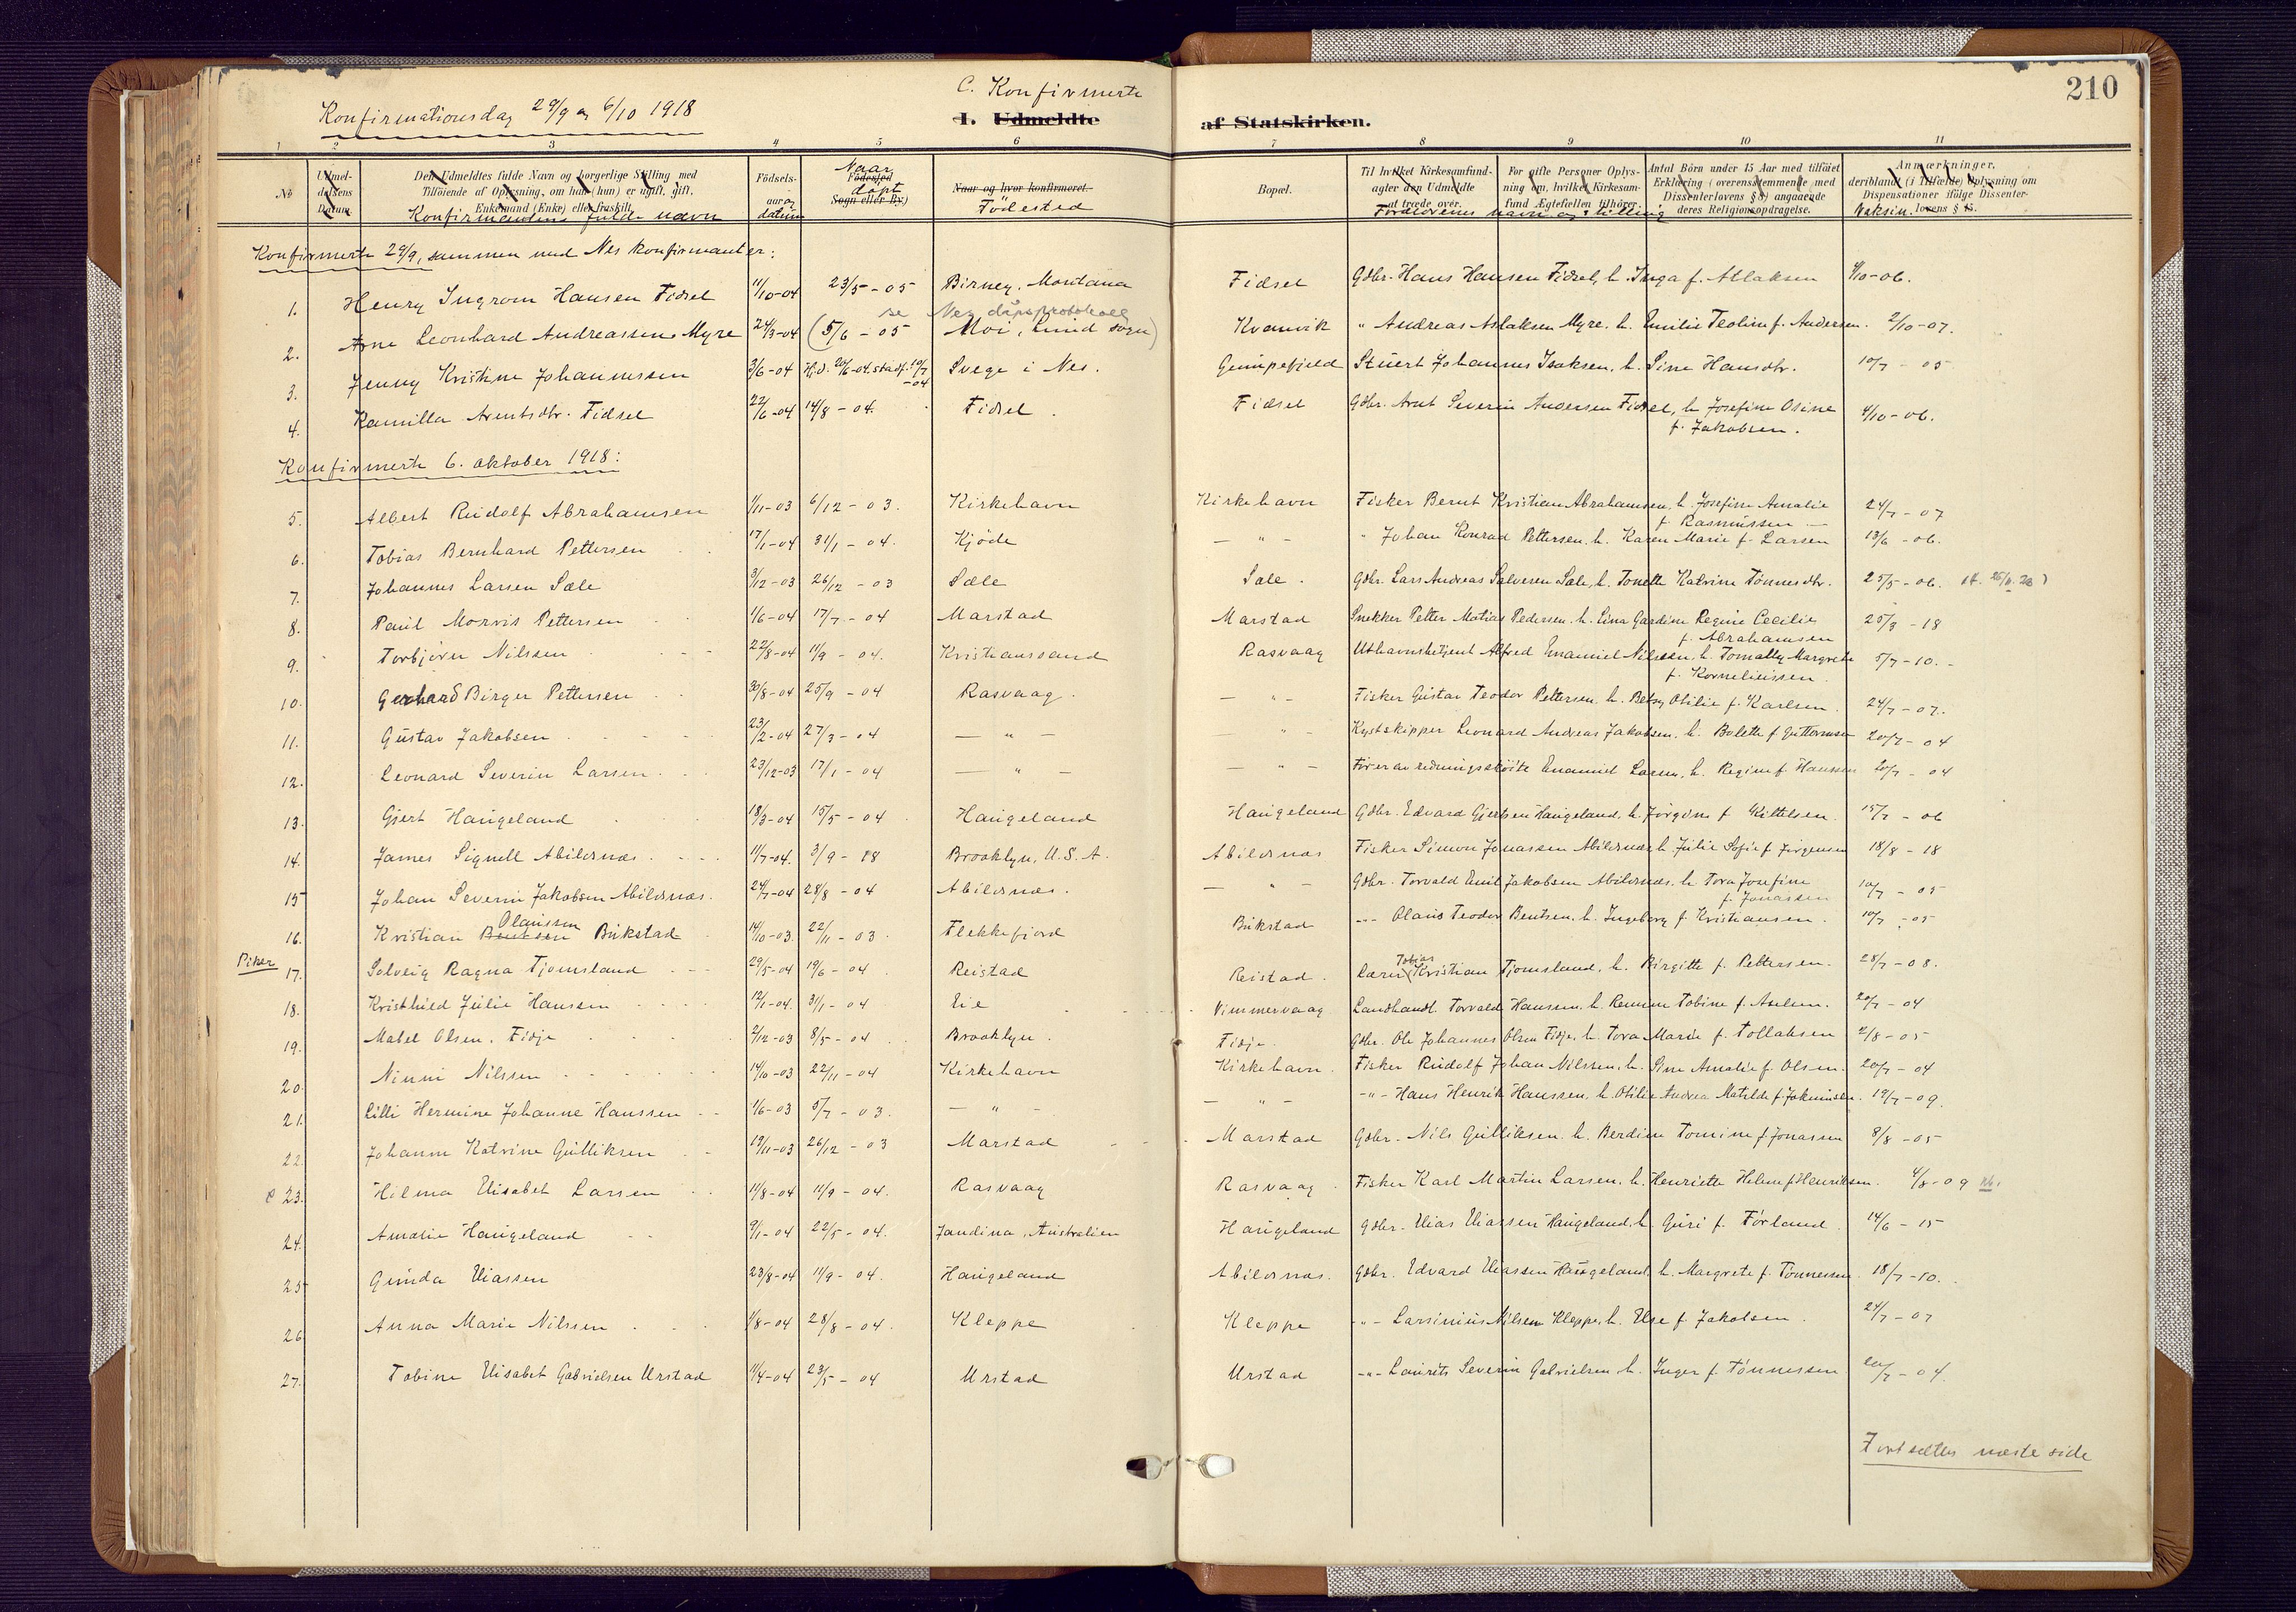 210
Konfirmationsdag 29/9 og 6/10 1918
C. Konfirmerte
I. Udmeldte af Statskirken.
1 2 3 4 5 6 7 8 9 10 11
No
Udmeldelsens Datum.
Den Udmeldtes fulde Navn og borgerlige Stilling med
Tilføiende af Oplysning, om han (hun) er ugift, gift,
Enkemand (Enke) eller fraskilt.
Konfirmandens fulde navn
Fødselsaar og datum
Naar døpt
Fødested
Sogn eller By.)
Naar og hvor konfirmeret.
Födested
Bopæl.
Til hvilket Kirkesamfund
agter den Udmeldte
at træde over.
For gifte Personer Oplysning
om, hvilket Kirkesamfund
Ægtefællen tilhører.
Antal Börn under 15 Aar med tilføiet
Erklæring (overensstemmende med
Dissenterlovens § 8) angaaende
deres Religionsopdragelse.
Forældrenes navn og stilling
Anmærkninger,
deriblandt (i Tilfælde) Oplysning om
Dispensationer ifölge Dissenterlovens § 15.
Vaksin.
Konfirmerte 29/9, sammen med Nes konfirmanter:
1. Henry Ingrom Hansen Fidsel 11/10-04 23/5-05 Birney, Montana Fidsel Gdbr. Hans Hansen Fidsel, h. Inga f. Atlaksen 4/10-06.
se Nes dåpsprotokoll
2. Arne Leonhard Andreassen Myre 24/3-04 (5/6-05 Moi, Lund sogn) Kvanvik " Andreas Aslaksen Myre, h. Emilie Teoline f. Andersen. 2/10-07.
3. Jenny Kristine Johannessen 3/6-04 Hj.d. 20/6-04. stadf. 10/7-04 Svege i Nes. Gumpefjeld Stuert Johannes Isaksen, h. Sine Hansdtr. 10/7-05
4. Kamilla Arentsdtr. Fidsel 22/6-04 14/8-04. Fidsel. Fidsel Gdbr. Arnt Severin Andersen Fidsel, h. Josefine Osine
f. Jakobsen. 4/10-06.
Konfirmerte 6. oktober 1918:
5. Albert Rudolf Abrahamsen 1/11-03 6/12-03. Kirkehavn Kirkehavn Fisker Bernt Kristian Abrahamsen, h. Josefine Amalie
f. Rasmussen 24/7-07
6. Tobias Bernhard Pettersen 17/1-04 31/1-04. Kjöde — " — " Johan Konrad Pettersen, h. Karen Marie f. Larsen 13/6-06.
7. Johannes Larsen Sæle 3/12-03 26/12-03 Sæle Sæle. Gdbr. Lars Andreas Salvesen Sæle, h. Tonette Katrine Tønnesdtr. 25/5-06.
8. Paul Morvis Pettersen 1/6-04 17/7-04 Marstad Marstad Snekker Petter Matias Pedersen, h. Lina Gardine Regine Cecilie
f. Abrahamsen 25/3-18
9. Torbjørn Nilssen 22/8-04 11/9-04. Kristianssand Rasvaag Uthavnsbetjent Alfred Emanuel Nilssen, h. Tomally Margrete
f. Korneliussen. 5/7-10.
10. Gerhard Birger Pettersen 30/8-04 25/9-04 Rasvaag. — " — Fisker Gustav Teodor Pettersen, h. Betsy Otilie f. Karlsen. 24/7-07.
11. Gustav Jakobsen 23/2-04 27/3-04 — " — — " — Kystskipper Leonard Andreas Jakobsen, h. Bolette f. Guttormsen 20/7-04
12. Leonard Severin Larsen 23/12-03 17/1-04 — " — — " — Fører av redningsskøite Emanuel Larsen, h. Regine f. Hansen 20/7-04
13. Gjert Haugeland 18/3-04 15/5-04 Haugeland Haugeland Gdbr. Edvard Gjertsen Haugeland, h. Jørgine f. Kittelsen. 15/7-06
14. James Signell Abilsnæs. 11/7-04. 3/9-18 Brooklyn, U.S.A. Abilsnæs Fisker Simon Jonassen Abilsnæs, h. Julie Sofie f. Jørgensen 18/8-18
15 Johan Severin Jakobsen Abilsnæs. 24/7-04 28/8-04 Abilsnæs. — " — Gdbr. Torvald Emil Jakobsen Abilsnæs, h. Tora Josefine
f. Jonassen 10/7-05
16. Kristian Bentsen Olaussen Bukstad 14/10-03. 22/11-03. Flekkefjord Bukstad -"- Olaus Teodor Bentsen, h. Ingeborg f. Kristiansen. 10/7-05
Piker
17. Solveig Ragna Tjomsland 29/5-04 19/6-04 Reistad Reistad. Lærer Tobias Kristian Tjomsland, h. Birgitte f. Pettersen. 28/7-08.
18. Kristhild Julie Hansen 12/1-04. 31/1-04 Eie Vimmervaag Landhandl. Torvald Hanssen, h. Tobine f. Axelsen. 20/7-04
19. Mabel Olsen. Fidje 2/12-03 8/5-04 Brooklyn. Fidje. Gdbr. Ole Johannes Olsen Fidje, h. Tora Marie f. Tollaksen 2/8-05
20. Ninni Nilssen 14/10-03 22/11-04 Kirkehavn Kirkehavn. Fisker Rudolf Johan Nilssen, h. Sine Amalie f. Olsen. 20/7-04
21. Lilli Hermine Johanne Hanssen 1/6-03 5/7-03. — " — — " — -"- Hans Henrik Hanssen, h. Otilie Andrea Matilde f. Jokumsen. 19/7-09.
22. Johanne Katrine Gulliksen 19/11-03 26/12-03 Marstad Marstad Gdbr. Nils Gulliksen, h. Berdine Tomine f. Jonassen 8/8-05
23. Hilma Elisabet Larsen 11/8-04 11/9-04. Rasvaag Rasvaag. Fisker Karl Martin Larsen, h. Henriette Helene f. Henriksen. 4/8-09
24. Amalie Haugeland 9/1-04 22/5-04. Jandina, Australien Haugeland Gdbr. Elias Eliassen Haugeland, h. Guri f. Förland. 14/6-15
25 Gunda Eliassen 23/8-04 11/9-04. Haugeland Abilsnæs. Gdbr. Edvard Eliassen Haugeland, h. Margrete f. Tønnessen 18/7-10.
26 Anna Marie Nilssen 1/8-04 28/8-04. Kleppe Kleppe -"- Larsinius Nilsen Kleppe, h. Else f. Jakobsen. 24/7-07
27. Tobine Elisabet Gabrielsen Urstad 11/4-04 23/5-04 Urstad Urstad -"- Laurits Severin Gabrielsen, h. Inger f. Tönnessen 20/7-04.
Fortsettes næste side